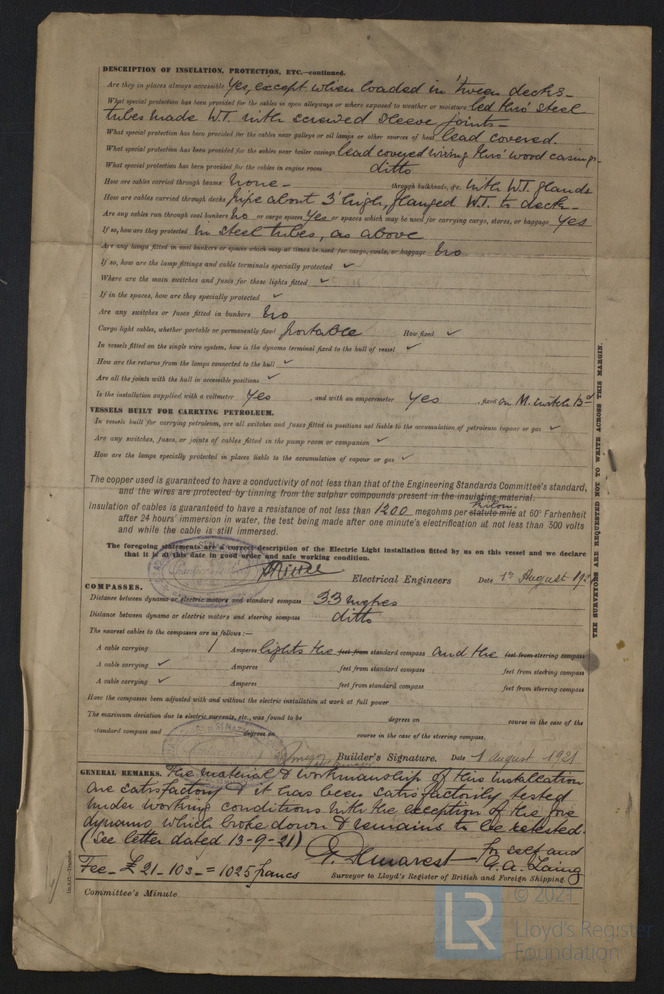 DESCRIPTION OF INSULATION, PROTECTION, ETC.—continued.
Are they in places always accessible Yes, except when loaded in 'tween decks -
What special protection has been provided for the cables in open alleyways or where exposed to weather or moisture led thro' steel
tubes made W.T. with screwed sleeve joints -
What special protection has been provided for the cables near galleys or oil lamps or other sources of heat lead covered.
What special protection has been provided for the cables near boiler casings lead covered wiring thro' wood casings.
What special protection has been provided for the cables in engine room ditto
How are cables carried through beams None - through bulkheads, &c. with W.T. glands
How are cables carried through decks pipe about 3' high, flanged W.T. to deck -
Are any cables run through coal bunkers no or cargo spaces Yes or spaces which may be used for carrying cargo, stores, or baggage Yes
If so, how are they protected in steel tubes, as above
Are any lamps fitted in coal bunkers or spaces which may at times be used for cargo, coals, or baggage no
If so, how are the lamp fittings and cable terminals specially protected ✓
Where are the main switches and fuses for these lights fitted ✓
If in the spaces, how are they specially protected ✓
Are any switches or fuses fitted in bunkers no
Cargo light cables, whether portable or permanently fixed portable How fixed ✓
In vessels fitted on the single wire system, how is the dynamo terminal fixed to the hull of vessel ✓
How are the returns from the lamps connected to the hull ✓
Are all the joints with the hull in accessible positions ✓
Is the installation supplied with a voltmeter Yes , and with an amperemeter Yes , fixed on M. switch Bd
VESSELS BUILT FOR CARRYING PETROLEUM.
In vessels built for carrying petroleum, are all switches and fuses fitted in positions not liable to the accumulation of petroleum vapour or gas ✓
Are any switches, fuses, or joints of cables fitted in the pump room or companion ✓
How are the lamps specially protected in places liable to the accumulation of vapour or gas ✓
The copper used is guaranteed to have a conductivity of not less than that of the Engineering Standards Committee's standard,
and the wires are protected by tinning from the sulphur compounds present in the insulating material.
Insulation of cables is guaranteed to have a resistance of not less than 1200 megohms per statute mile kilom. at 60° Farhenheit
after 24 hours' immersion in water, the test being made after one minute's electrification at not less than 500 volts
and while the cable is still immersed.
The foregoing statements are a correct description of the Electric Light installation fitted by us on this vessel and we declare
that it is at this date in good order and safe working condition.
Electrical Engineers Date 1st August 192
COMPASSES.
Distance between dynamo or electric motors and standard compass 33 metres
Distance between dynamo or electric motors and steering compass ditto
The nearest cables to the compasses are as follows:—
A cable carrying 1 Amperes lights the feet from standard compass and the feet from steering compass
A cable carrying ✓ Amperes feet from standard compass feet from steering compass
A cable carrying ✓ Amperes feet from standard compass feet from steering compass
Have the compasses been adjusted with and without the electric installation at work at full power
The maximum deviation due to electric currents, etc., was found to be degrees on course in the case of the
standard compass and degrees on course in the case of the steering compass.
Builder's Signature. Date 1 August 1921
GENERAL REMARKS. The material & workmanship of this installation
are satisfactory & it has been satisfactorily tested
under working conditions with the exception of the fore
dynamo which broke down & remains to be retested.
(See letter dated 13-9-21)
for self and
G. A. Laing
Fee £ 21-10s- = 1025 francs
Surveyor to Lloyd's Register of British and Foreign Shipping.
Committee's Minute
THE SURVEYORS ARE REQUESTED NOT TO WRITE ACROSS THIS MARGIN.
© 2021
LR
Lloyd's Register
Foundation